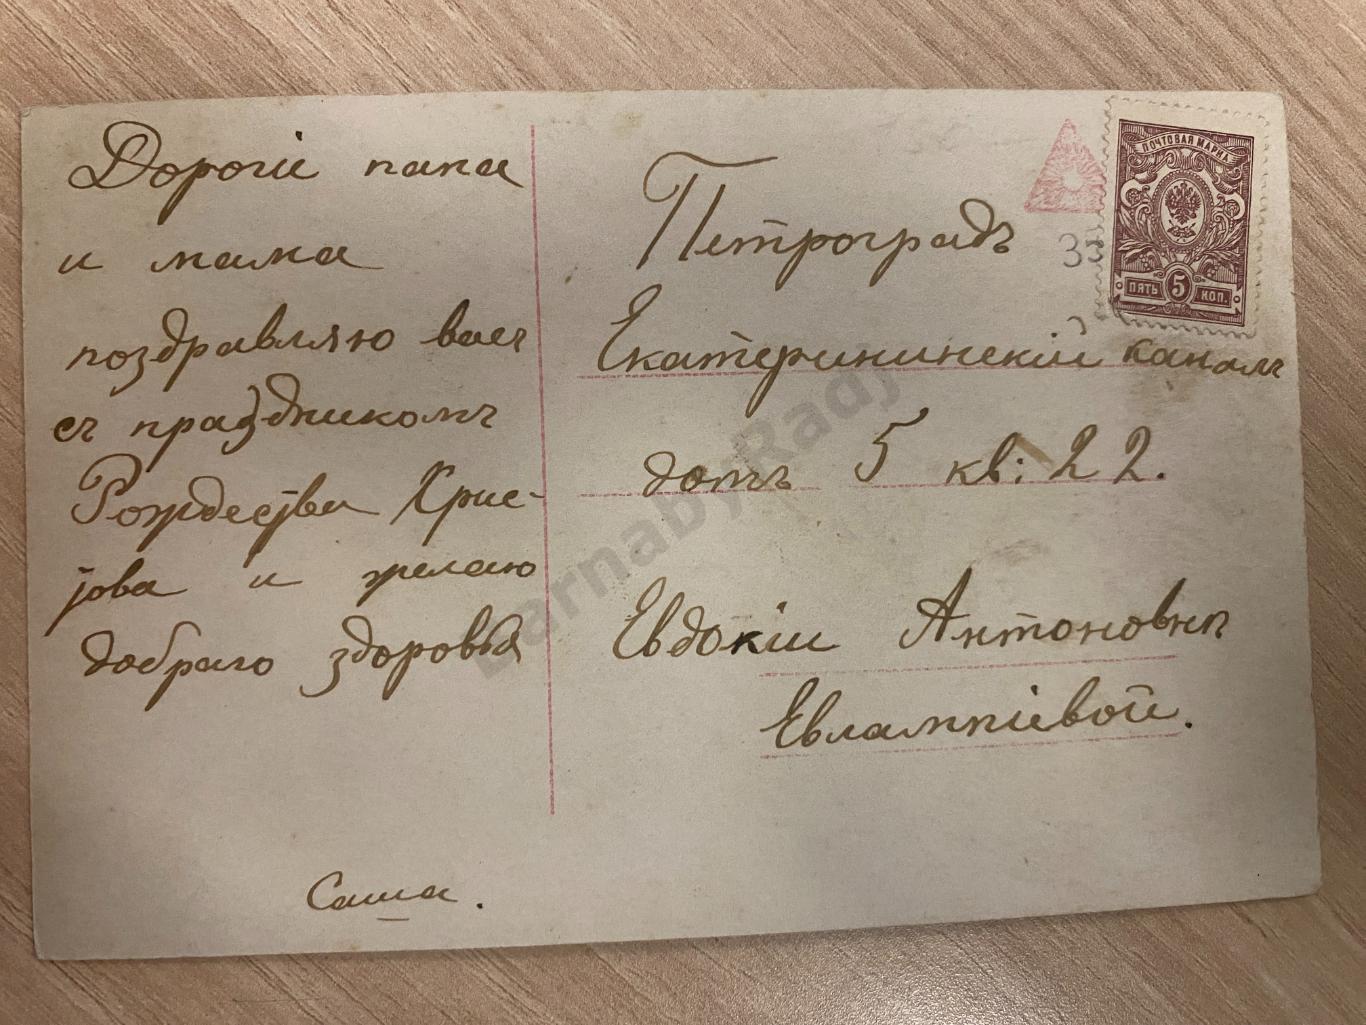 Дорогіе папа
и мама
поздравляю васъ
съ праздникомъ
Рождества Хрис-
това и желаю
добраго здоровья
Саша.
Петроградъ
Екатерининскій каналъ
домъ 5 кв: 22.
Евдокіи Антоновнѣ
Евлампіевой.
ПОЧТОВАЯ МАРКА
ПЯТЬ 5 КОП.
BarnabyRadj